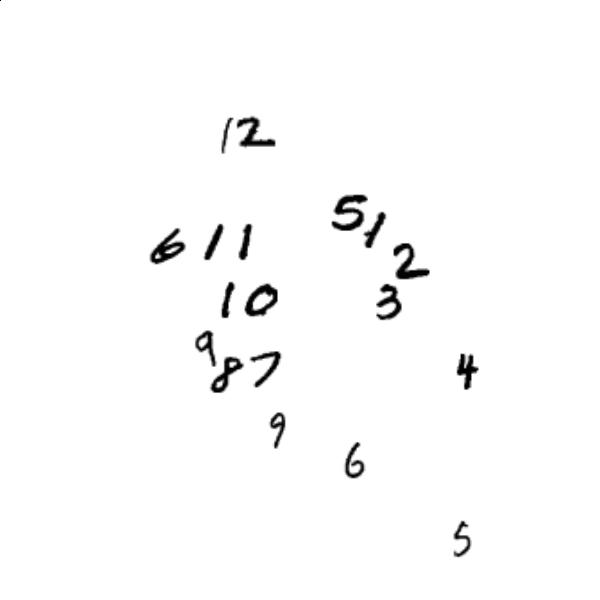 12
5 1
6 11
2
10
3
9
8 7
4
9
6
5